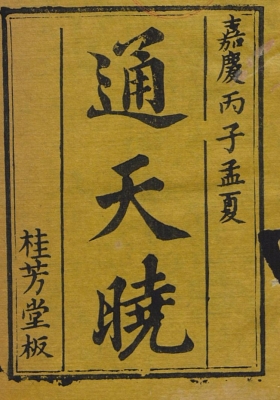 嘉慶丙子孟夏
通天曉
桂芳堂板